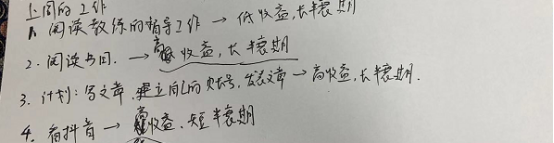 上周的工作
1. 阅读教练的指导工作 → 低收益,长半衰期
2. 阅读书目. → 高收益,长半衰期
3. 计划:写文章,建立同化的账号,发表文章 → 高收益,长半衰期.
4. 看抖音 → 高收益.短半衰期